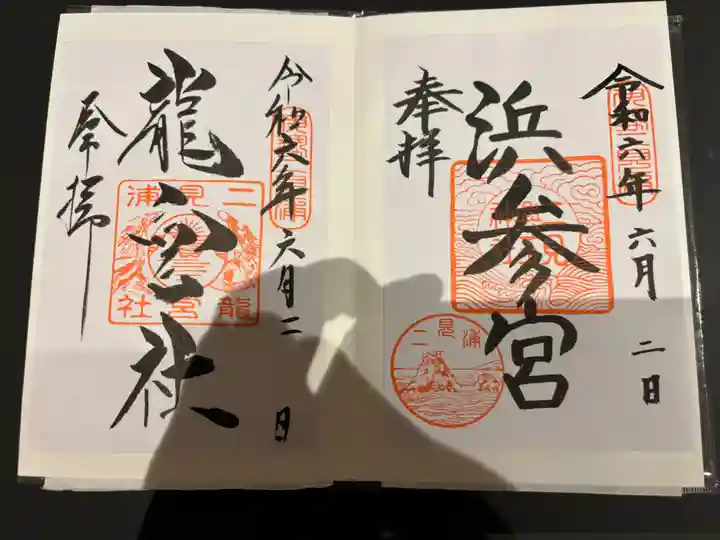 令和六年 六月 二日
浜参宮
奉拝
二見浦
令和六年 六月二日
龍宮社
奉拝
二見浦
龍宮社